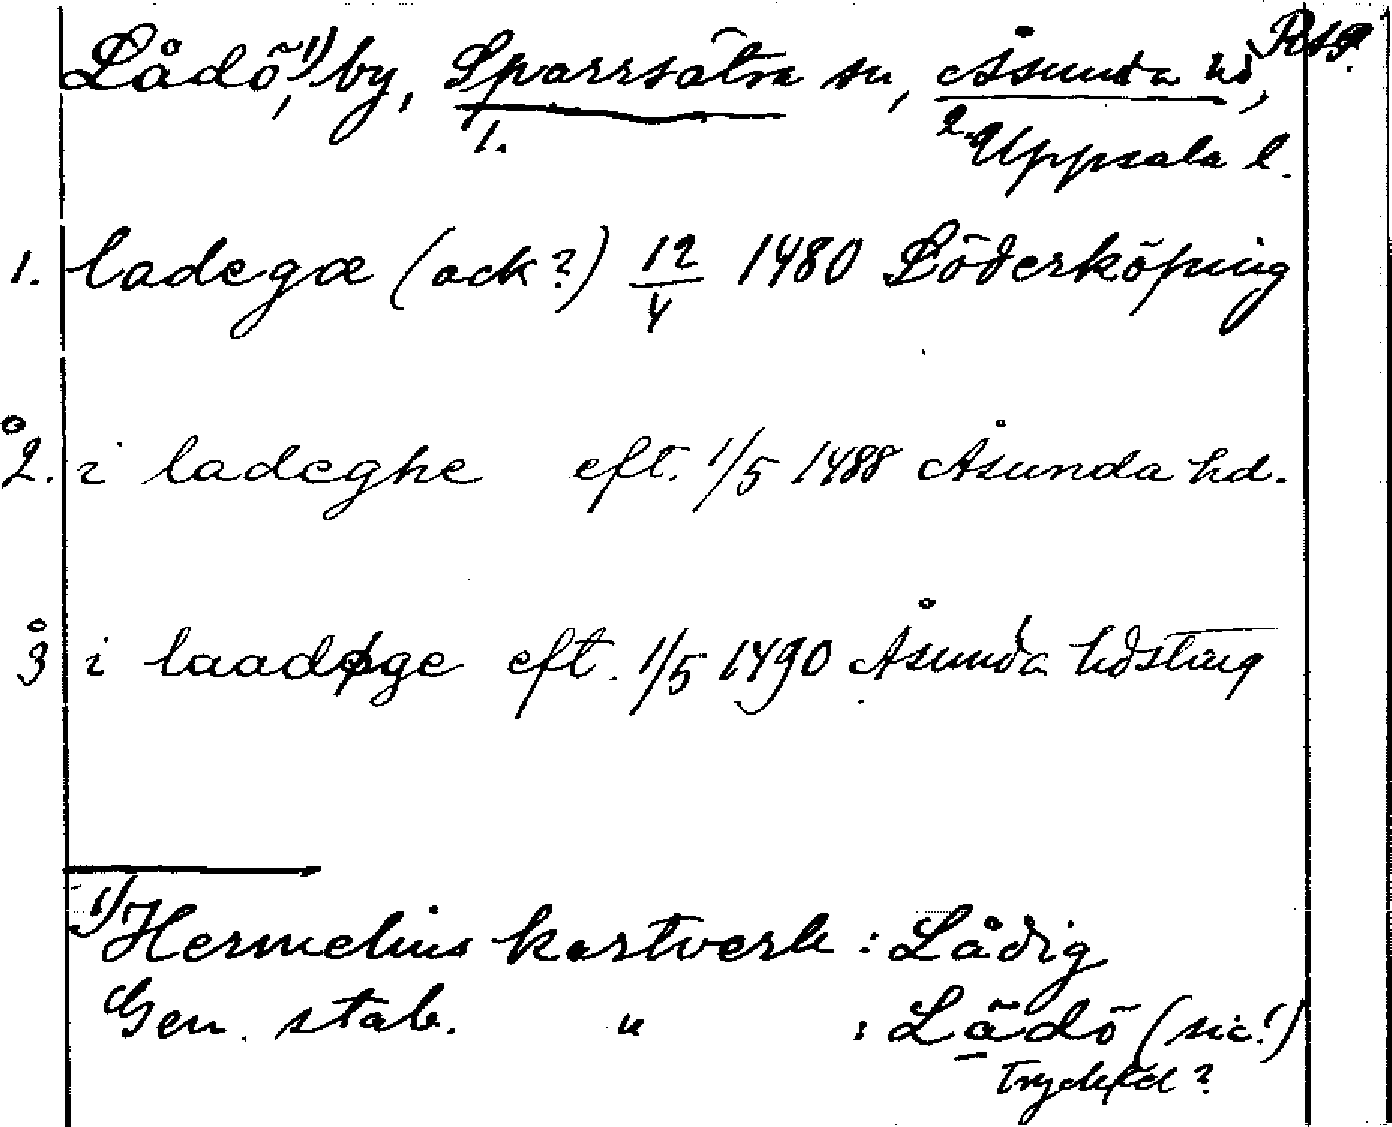 Lådö,¹⁾ by, Sparrsätra sn, Åsunda hd,
1. 2. Uppsala l.
1. ladegæ (ock?) 12/4 1480 Söderköping
2. i ladeghe eft. 1/5 1488 Åsunda hd.
3 i laadøge eft. 1/5 1490 Åsunda hdsting
1) Hermelins kartverk : Lådig
Gen. stab. " : Lädö (sic!)
Tryckfel?